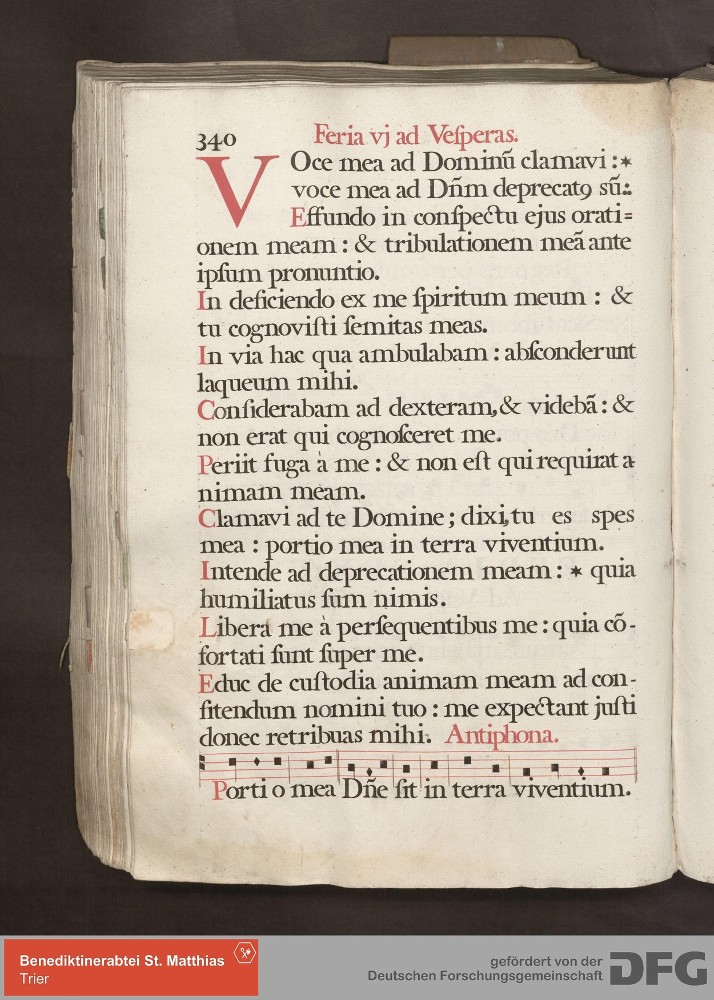 340 Feria vj ad Veſperas.
VOce mea ad Dominũ clamavi : *
voce mea ad Dñm deprecatꝯ sũ :.
Effundo in conſpectu ejus orati=
onem meam : & tribulationem meã ante
ipſum pronuntio.
In deficiendo ex me ſpiritum meum : &
tu cognoviſti ſemitas meas.
In via hac qua ambulabam : abſconderunt
laqueum mihi.
Conſiderabam ad dexteram, & videbã : &
non erat qui cognoſceret me.
Periit fuga à me : & non eſt qui requirat a
nimam meam.
Clamavi ad te Domine ; dixi, tu es spes
mea : portio mea in terra viventium.
Intende ad deprecationem meam : * quia
humiliatus ſum nimis.
Libera me à perſequentibus me : quia cõ-
fortati ſunt ſuper me.
Educ de cuſtodia animam meam ad con-
fitendum nomini tuo : me expectant juſti
donec retribuas mihi. Antiphona.
Porti o mea Dñe ſit in terra viventium.
Benediktinerabtei St. Matthias
Trier
gefördert von der
Deutschen Forschungsgemeinschaft
DFG